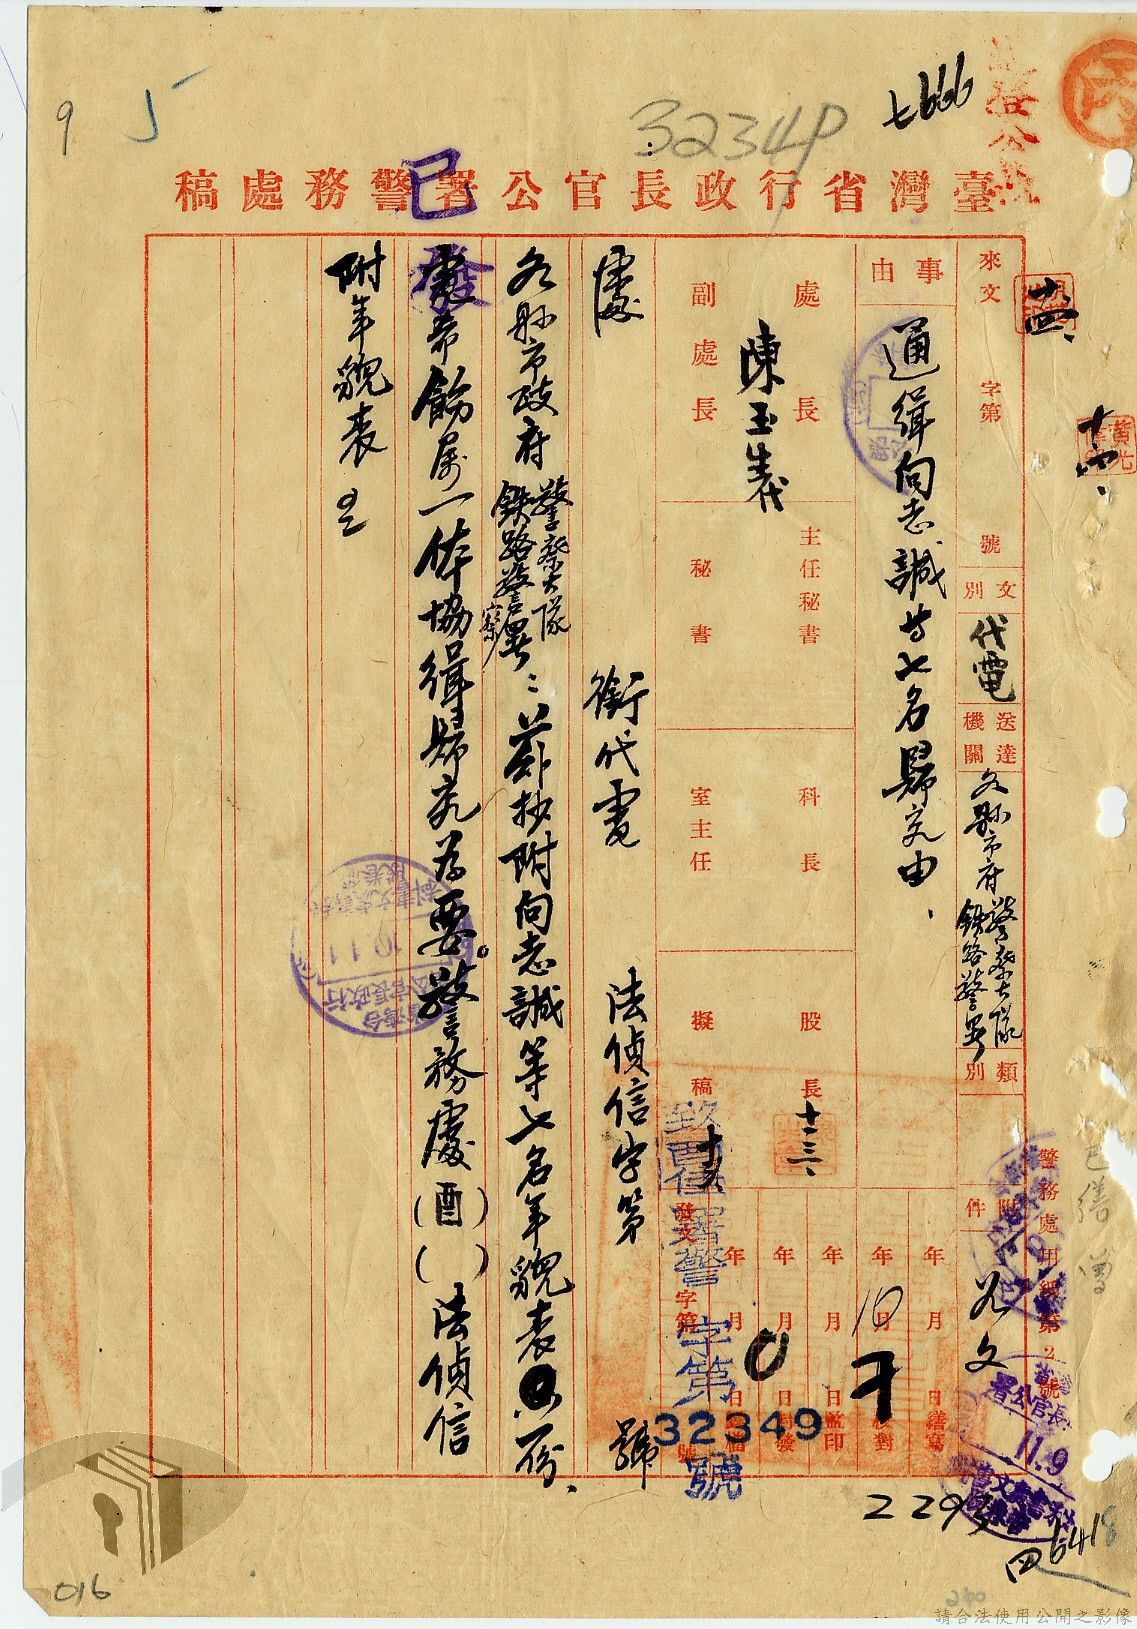 臺灣省行政長官公署警務處稿
已發
32349
七666
9
5
來文 字第 號
文別 代電
送達機關 各縣市府警察大隊
鐵路警署
類別
附件 如文
事由 通緝向志誠等七名歸究由、
處長 主任秘書 科長 股長
十一三
陳玉義
副處長 秘書 室主任 擬稿
年 月 日繕寫
年 月 日校對
年 月 日監印
年 月 日封發
發文 字第 號
致 署警字第32349號
銜代電 法偵信字第 號
各縣市政府警察大隊
鐵路警察署：茲抄附向志誠等七名年貌表一份、
希飭屬一体協緝歸究為要。警務處(酉)( )法偵信
附年貌表
警務處用紙第2號
10.11
11.9
已繕
6418
016
請合法使用公開之影像